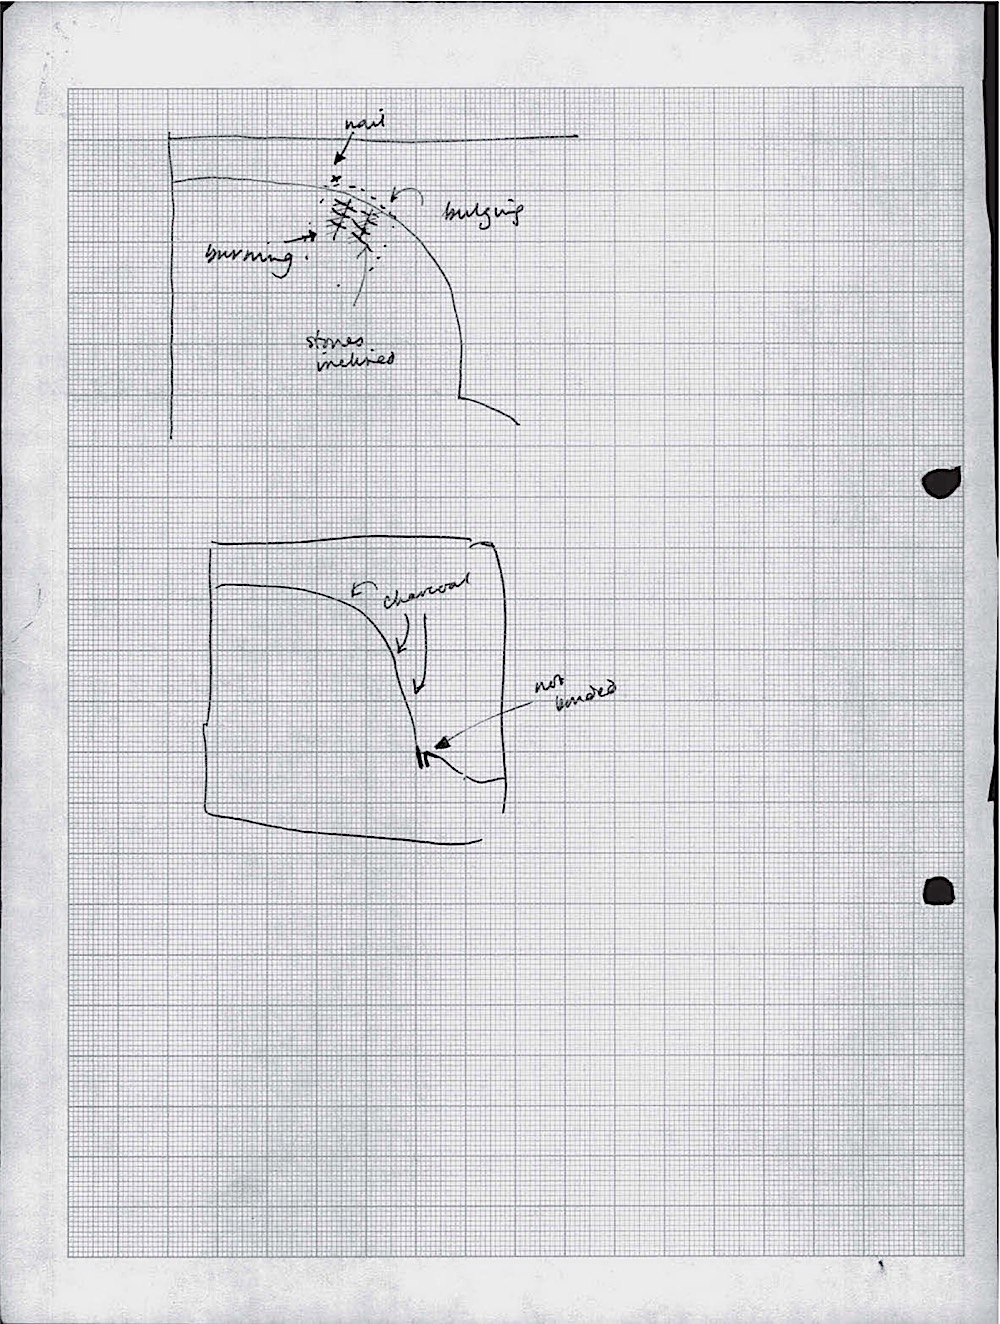 nail
bulging
burning
stones
inclined
charcoal
not
bonded